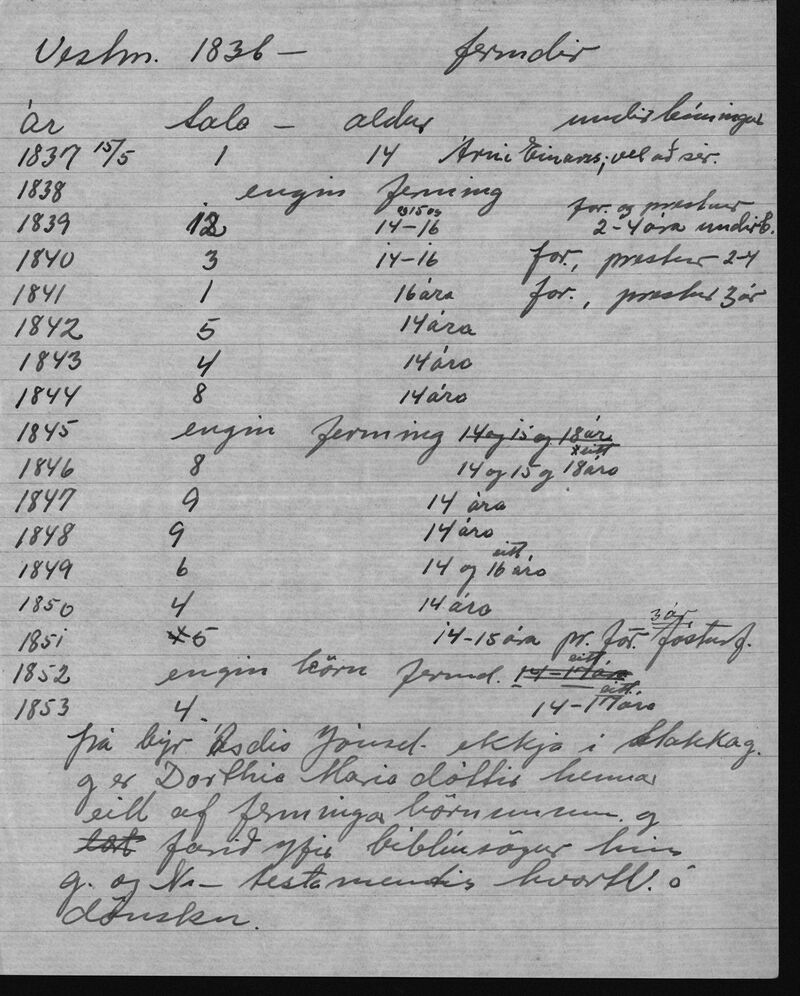 Vestm. 1836 – fermdir
ár tala – aldur undirbúningur
1837 15/5 1 14 Árni Einars; vel að sér.
1838 engin ferming
for. og prestur
1839 12 14–16 2–4 ára undirb.
1840 3 14–16 for., prestur 2–4
1841 1 16 ára for., prestur 3 ár
1842 5 14 ára
1843 4 14 ára
1844 8 14 ára
1845 engin ferming 14 og 15 og 18 ár
eitt
1846 8 14 og 15 og 18 ára
1847 9 14 ára
1848 9 14 ára
eitt
1849 6 14 og 16 ára
1850 4 14 ára
3 ár
1851 5 14–15 ára pr. for. fósturf.
eitt
1852 engin börn fermd. 14–17 ára
eitt
1853 4 14–17 ára
þá býr Ásdís Jónsd. ekkja í Stakkag.
g er Dorthia Maria dóttir hennar
eitt af fermingar börnunum. g
farið yfir biblíusögur hins
g. og N– testamentis hvortv. á
dönsku.